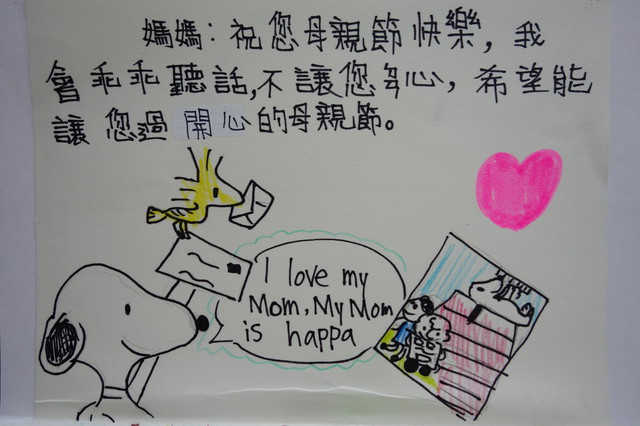 媽媽：祝您母親節快樂，我
會乖乖聽話,不讓您身心，希望能
讓您過開心的母親節。
I love my
Mom, My Mom
is happa